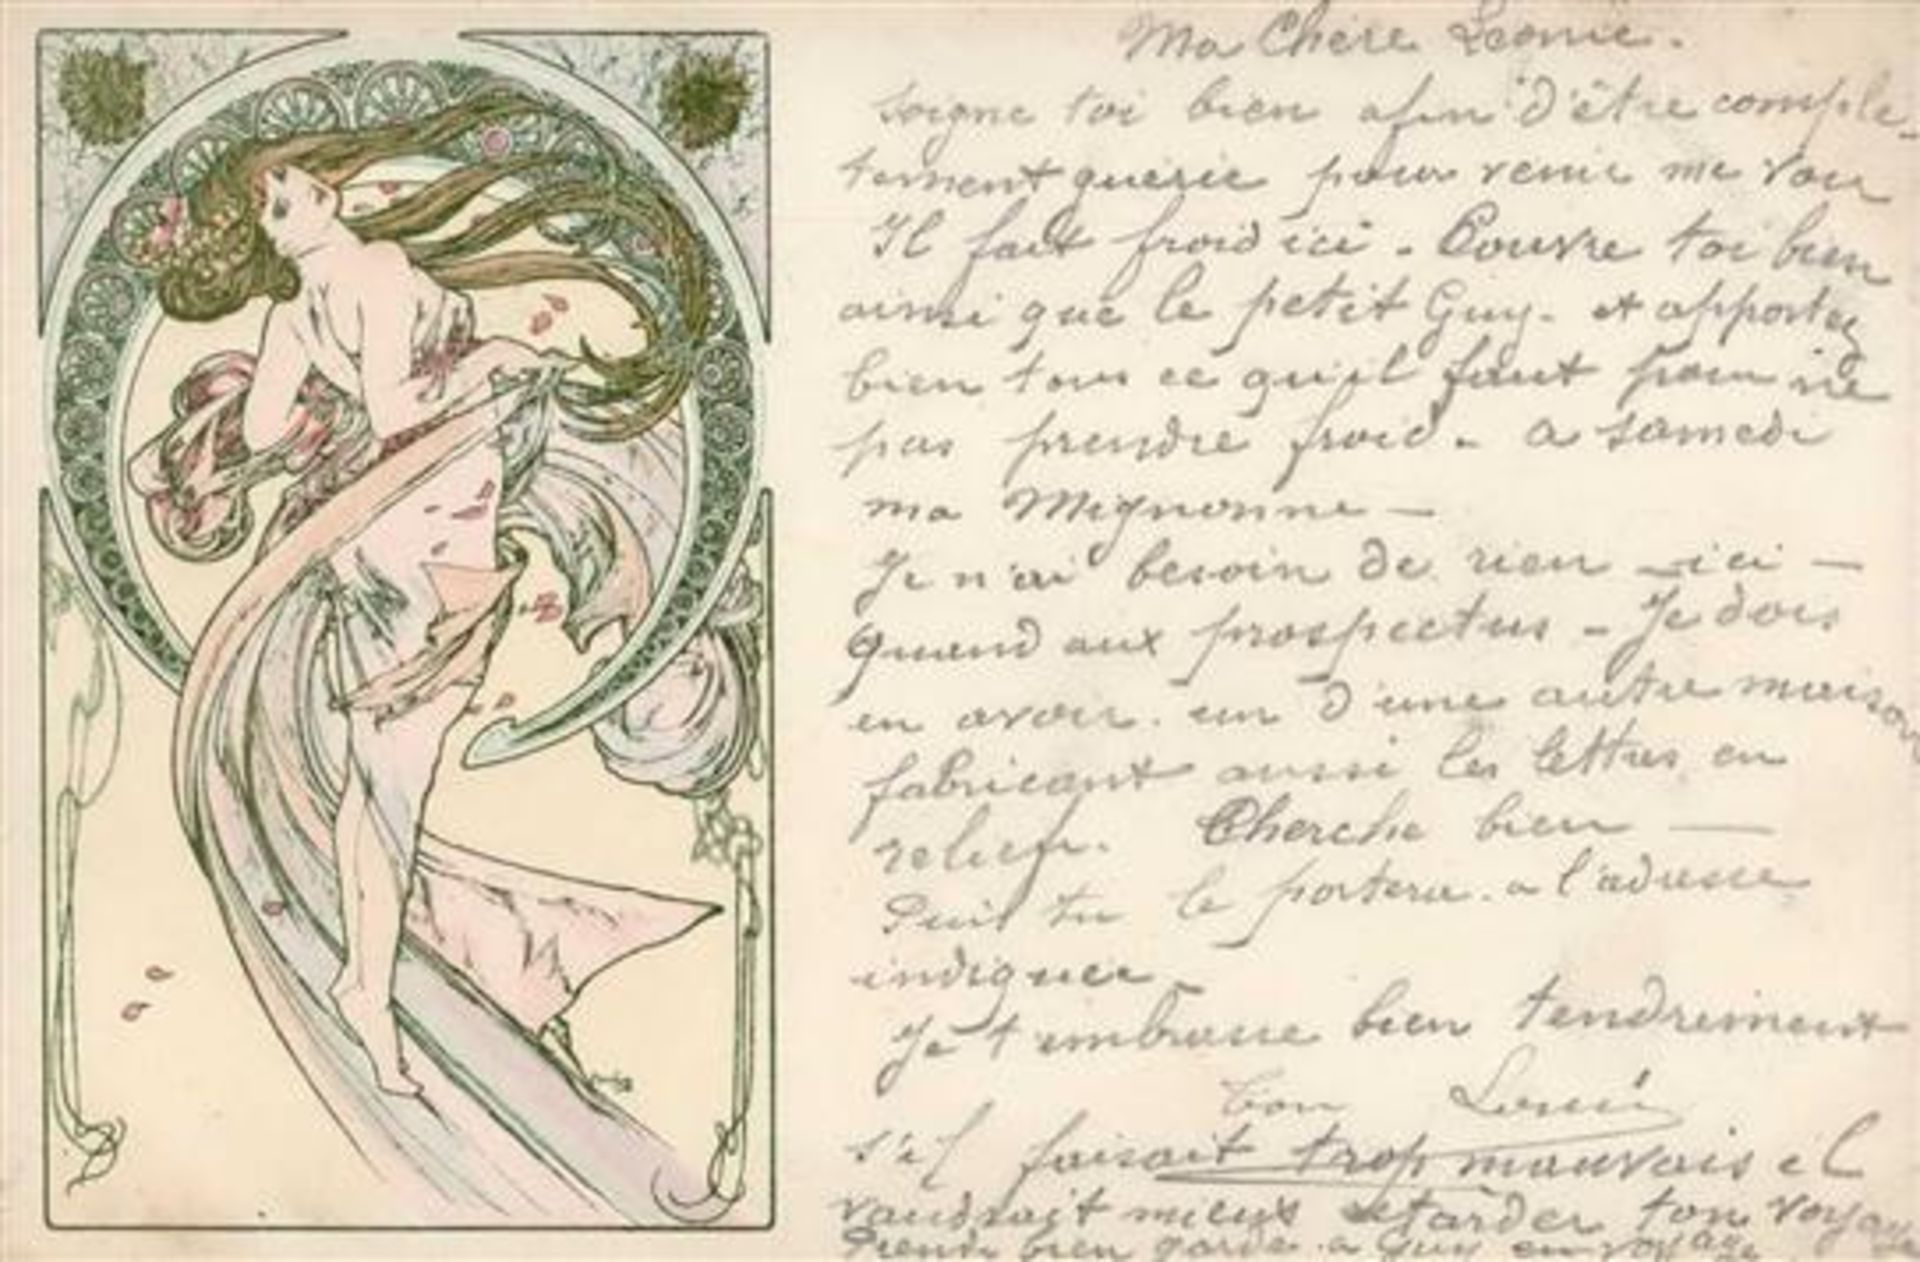 Ma Chère Léonie.
Soigne toi bien afin d'être complè-
tement guérie pour venir me voir
Il fait froid ici - Couvre toi bien
ainsi que le petit Guy - et apportez
bien tous ce qu'il faut pour ne
pas prendre froid - a samedi
ma Mignonne -
Je n'ai besoin de rien - ici -
Quand aux prospectus - Je dois
en avoir un d'une autre maison
fabricant aussi les lettres en
relief. Cherche bien -
Puis tu le portera a l'adresse
indiquée
Je t embrasse bien tendrement
Ton
s'il faisait trop mauvais il
vaudrait mieux retarder ton voyage
Prends bien garde a Guy en voyage